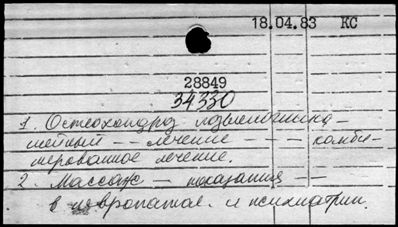 18.04.83 КС
28849
34330
1. Остеохондроз позвоночника
шейный -- лечение ---- комби-
нированное лечение.
2. Массаж - показания --
в невропатол. и психиатрии.